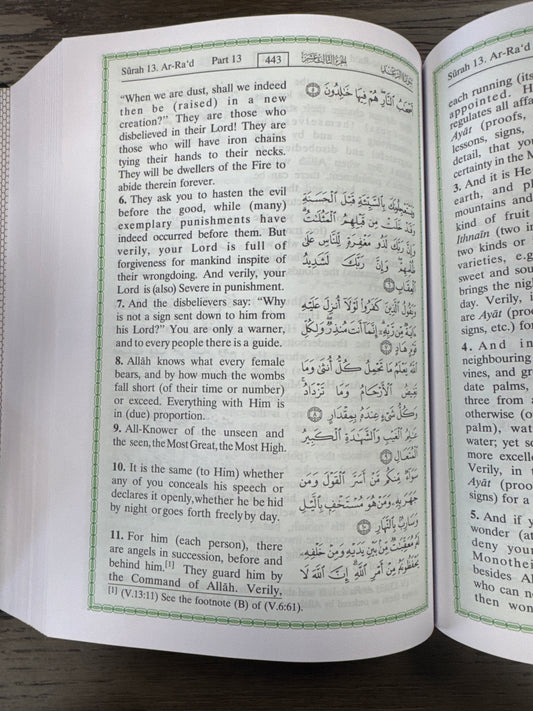 Sûrah 13. Ar-Ra'd Part 13 443 الجزء الثالث عشر سورة الرعد
"When we are dust, shall we indeed
then be (raised) in a new
creation?" They are those who
disbelieved in their Lord! They are
those who will have iron chains
tying their hands to their necks.
They will be dwellers of the Fire to
abide therein forever.
6. They ask you to hasten the evil
before the good, while (many)
exemplary punishments have
indeed occurred before them. But
verily, your Lord is full of
forgiveness for mankind inspite of
their wrongdoing. And verily, your
Lord is (also) Severe in punishment.
7. And the disbelievers say: "Why
is not a sign sent down to him from
his Lord?" You are only a warner,
and to every people there is a guide.
8. Allâh knows what every female
bears, and by how much the wombs
fall short (of their time or number)
or exceed. Everything with Him is
in (due) proportion.
9. All-Knower of the unseen and
the seen, the Most Great, the Most High.
10. It is the same (to Him) whether
any of you conceals his speech or
declares it openly, whether he be hid
by night or goes forth freely by day.
11. For him (each person), there
are angels in succession, before and
behind him.[1] They guard him by
the Command of Allâh. Verily,
أَصْحَٰبُ ٱلنَّارِ هُمْ فِيهَا خَٰلِدُونَ ٥
وَيَسْتَعْجِلُونَكَ بِٱلسَّيِّئَةِ قَبْلَ ٱلْحَسَنَةِ
وَقَدْ خَلَتْ مِن قَبْلِهِمُ ٱلْمَثُلَٰتُ
وَإِنَّ رَبَّكَ لَذُو مَغْفِرَةٍ لِّلنَّاسِ عَلَىٰ
ظُلْمِهِمْ وَإِنَّ رَبَّكَ لَشَدِيدُ
ٱلْعِقَابِ ٦
وَيَقُولُ ٱلَّذِينَ كَفَرُوا۟ لَوْلَآ أُنزِلَ عَلَيْهِ
ءَايَةٌ مِّن رَّبِّهِۦٓ إِنَّمَآ أَنتَ مُنذِرٌ وَلِكُلِّ
قَوْمٍ هَادٍ ٧
ٱللَّهُ يَعْلَمُ مَا تَحْمِلُ كُلُّ أُنثَىٰ وَمَا
تَغِيضُ ٱلْأَرْحَامُ وَمَا تَزْدَادُ
وَكُلُّ شَىْءٍ عِندَهُۥ بِمِقْدَارٍ ٨
عَٰلِمُ ٱلْغَيْبِ وَٱلشَّهَٰدَةِ ٱلْكَبِيرُ
ٱلْمُتَعَالِ ٩
سَوَآءٌ مِّنكُم مَّنْ أَسَرَّ ٱلْقَوْلَ وَمَن
جَهَرَ بِهِۦ وَمَنْ هُوَ مُسْتَخْفٍۭ بِٱلَّيْلِ
وَسَارِبٌۢ بِٱلنَّهَارِ ١٠
لَهُۥ مُعَقِّبَٰتٌ مِّنۢ بَيْنِ يَدَيْهِ وَمِنْ خَلْفِهِۦ
يَحْفَظُونَهُۥ مِنْ أَمْرِ ٱللَّهِ إِنَّ ٱللَّهَ لَا
[1] (V.13:11) See the footnote (B) of (V.6:61).
Sûrah 13. Ar-Ra'd
each running (its
appointed. H
regulates all affa
Ayât (proofs,
lessons, signs,
detail, that yo
certainty in the M
3. And it is He
earth, and pl
mountains and
kind of fruit
Ithnaîn (two in
two kinds or
varieties, e.g
sweet and sou
brings the nig
day. Verily, i
are Ayât (proo
signs, etc.) for
4. And in
neighbouring
vines, and gr
date palms,
three from a
otherwise (o
palm), wat
water; yet so
more excell
Verily, in t
Ayât (proo
signs) for a
5. And if y
wonder (at
deny your
Monothei
besides Al
who can n
then won